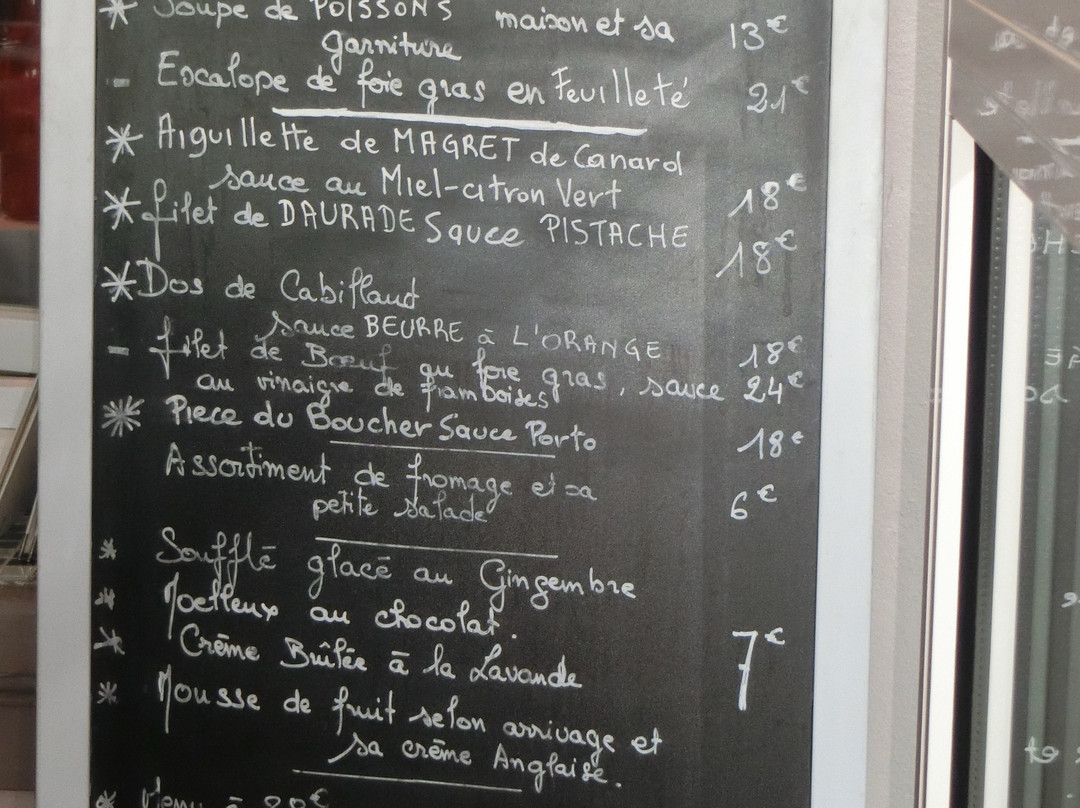 * Soupe de POISSONS maison et sa 13€
garniture
- Escalope de foie gras en Feuilleté 21€
* Aiguillette de MAGRET de Canard
sauce au Miel-citron Vert 18€
* filet de DAURADE Sauce PISTACHE 18€
* Dos de Cabillaud
sauce BEURRE à L'ORANGE 18€
- filet de Bœuf au foie gras, sauce 24€
au vinaigre de framboises
* Piece du Boucher Sauce Porto 18€
Assortiment de fromage et sa
petite salade 6€
* Soufflé glacé au Gingembre
* Moelleux au chocolat. 7€
* Crème Brûlée à la Lavande
* Mousse de fruit selon arrivage et
sa crème Anglaise.
* Menu à